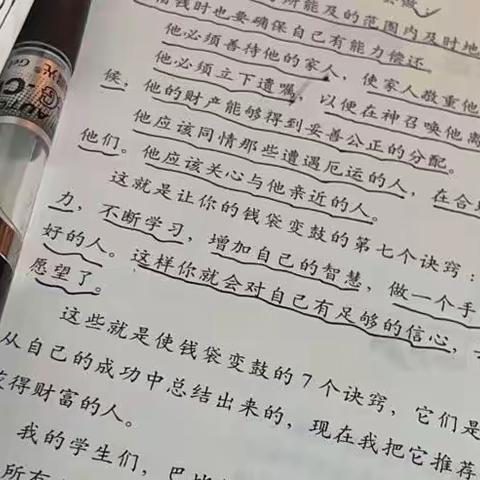 所能及的范围内及时地
借钱时也要确保自己有能力偿还。
他必须善待他的家人，使家人敬重他
他必须立下遗嘱，以便在神召唤他离
候，他的财产能够得到妥善公正的分配。
他应该同情那些遭遇厄运的人，在合
他们。他应该关心与他亲近的人。
这就是让你的钱袋变鼓的第七个诀窍：
力，不断学习，增加自己的智慧，做一个手
好的人。这样你就会对自己有足够的信心，
愿望了。
这些就是使钱袋变鼓的7个诀窍，它们是
从自己的成功中总结出来的，现在我把它推荐
获得财富的人。
我的学生们，巴比
所有